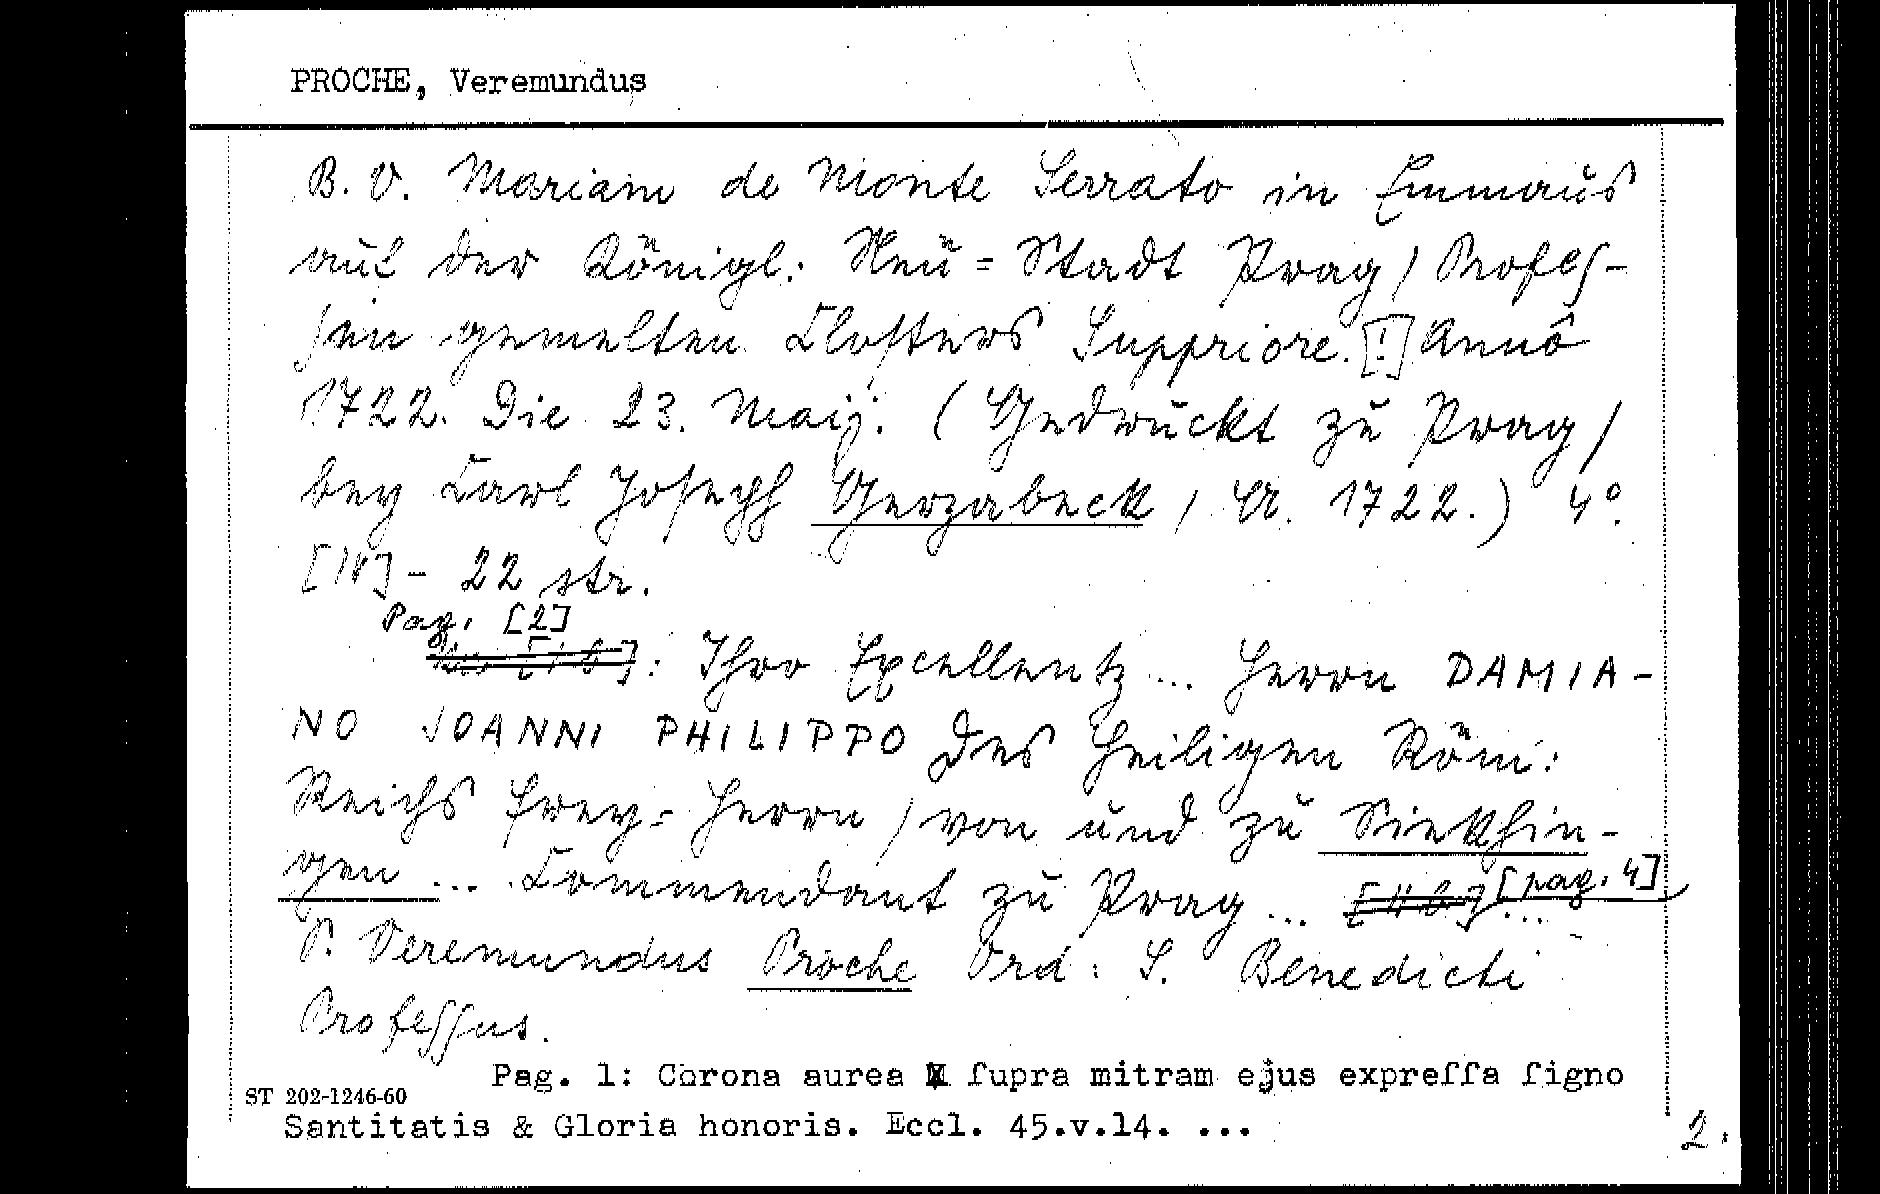 PROCHE, Veremundus
B. V. Mariam de Monte Serrato in Emmaus
auf der Königl: Neu=Stadt Prag / Profeſ-
ſen gemelten Cloſters Suppriore. [!] Annô
1722. Die 23. Maij. (Gedruckt zu Prag /
bey Carl Joseph Gerzabeck / A. 1722.) 4°.
[IV] - 22 str.
Pag. [2]
: Ihro Excellentz ... Herrn DAMIA-
NO JOANNI PHILIPPO des Heiligen Röm:
Reichs Frey=Herrn / von und zu Sinkhin-
gen ... Commendant zu Prag ... [pag. 4] ...
P. Veremundus Proche Ord: S. Benedicti
Profeſſus.
Pag. 1: Corona aurea ſupra mitram ejus expreſſa ſigno
ST 202-1246-60
Santitatis & Gloria honoris. Eccl. 45.v.14. ...
2.